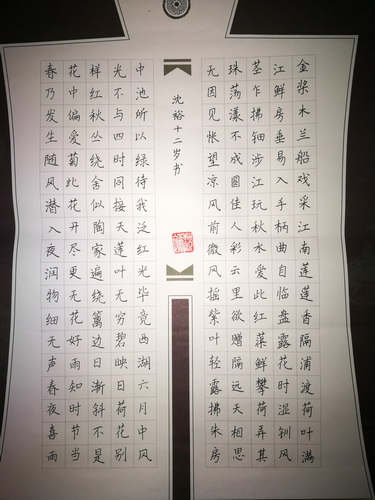 金桨木兰船戏采江南莲莲香隔浦渡荷叶满
江鲜房垂易入手柄曲自临盘露花时湿钏风
茎乍拂钿涉江玩秋水爱此红蕖鲜攀荷弄其
珠荡漾不成圓佳人彩云里欲赠隔远天相思
无因见怅望凉风前微风摇紫叶轻露拂朱房
沈裕十二岁书
中池所以绿待我泛红光毕竟西湖六月中风
光不与四时同接天莲叶无穷碧映日荷花别
样红秋丛绕舍似陶家遍绕篱边日渐斜不是
花中偏爱菊此花开尽更无花好雨知时节当
春乃发生随风潜入夜润物细无声春夜喜雨